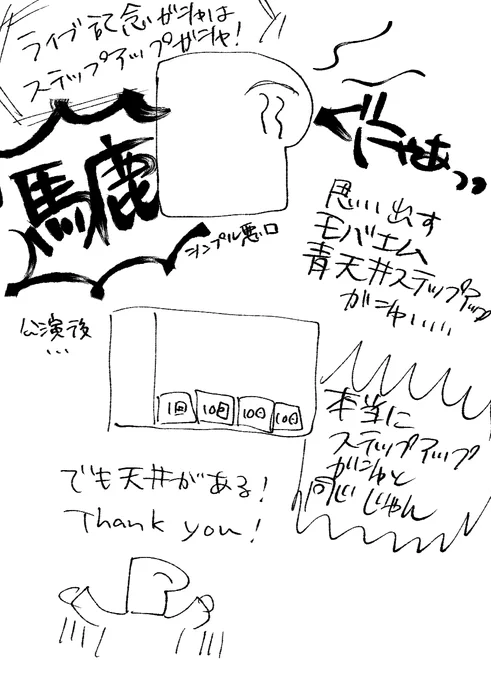 ライブ記念ガシャは
ステップアップガシャ!
馬鹿
シンプル悪口
ぐにゃあっっ
思い出す
モバエム
青天井ステップアップ
ガシャ……
公演後
…
1回
10回
10回
10回
本当に
ステップアップ
ガシャと
同じじゃん
でも天井がある!
Thank you!